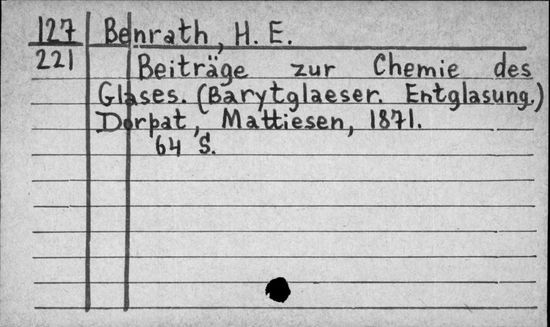 127 Benrath, H. E.
221 Beiträge zur Chemie des
Glases. (Barytglaeser. Entglasung.)
Dorpat, Mattiesen, 1871.
64 S.